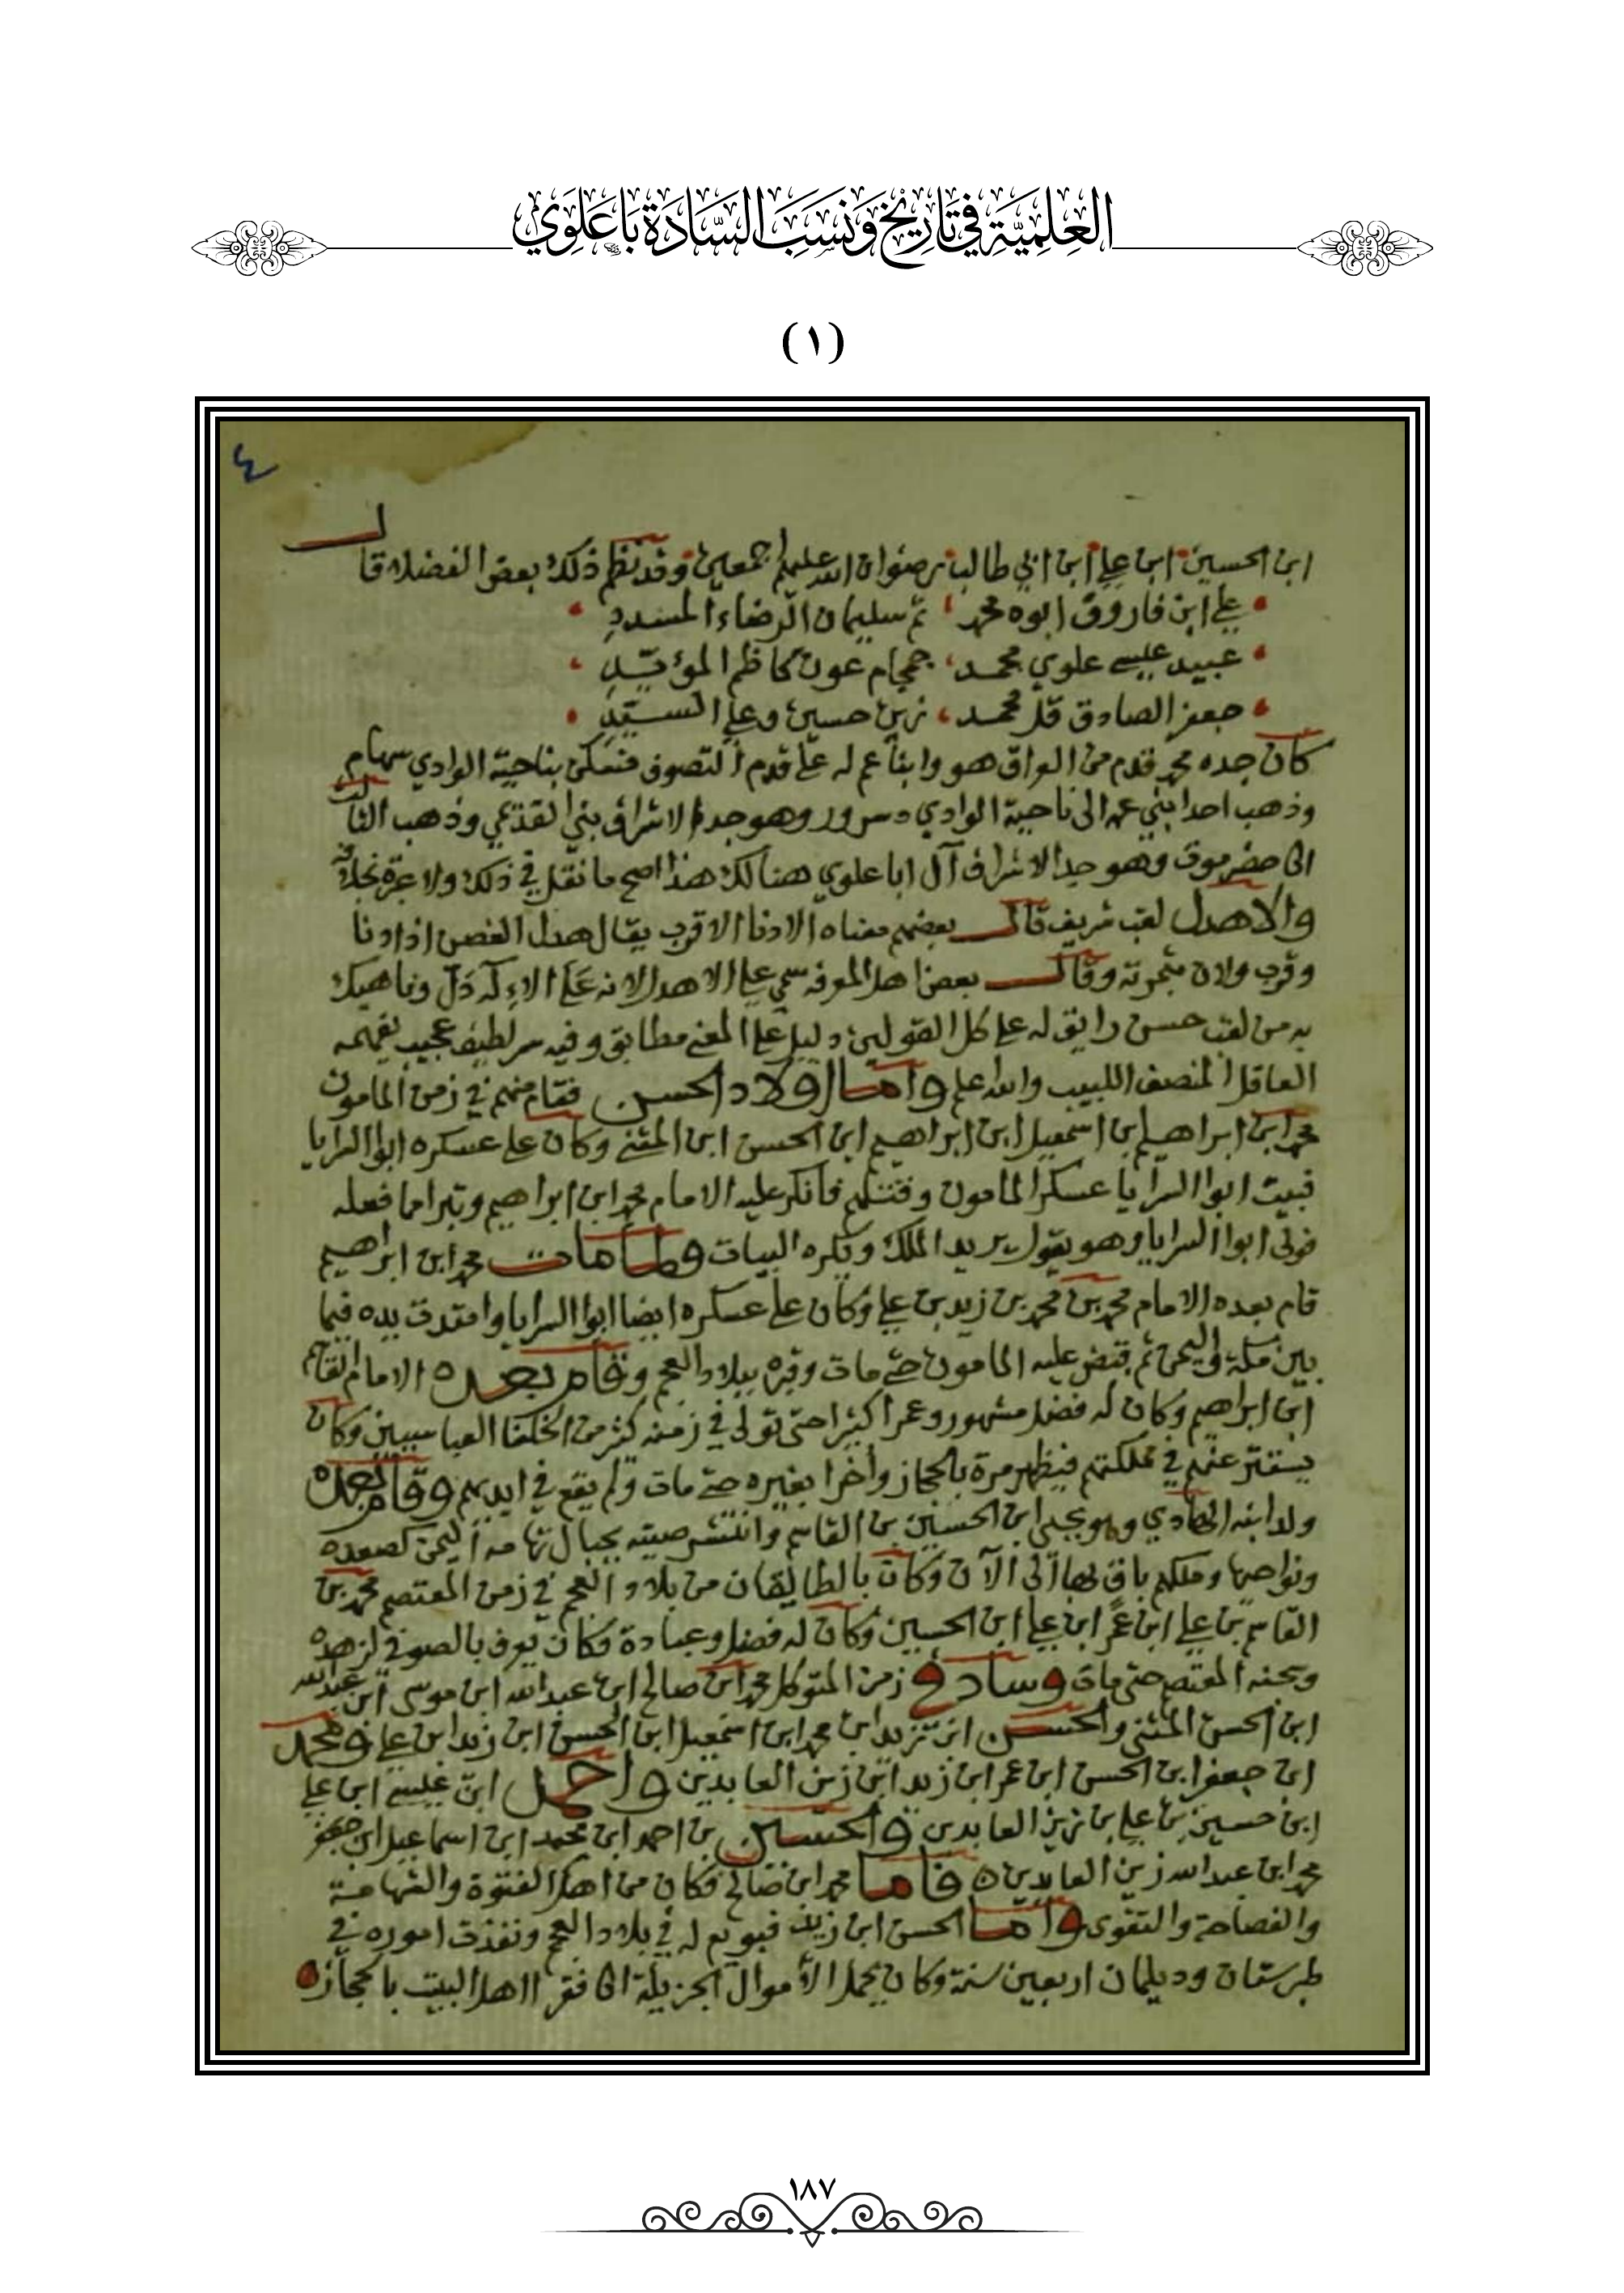 العِلمِيَّة في تَاريخ وَنَسَب السَّادَة بَاعَلَوي
(١)
٤
ابن الحسين ابن علي ابن ابي طالب رضوان الله عليهم اجمعين وقد نظم ذلك بعض الفضلاء قال
علي ابن فاروق ابوه محمد ثم سليمان الرضاء المسدد
عبيد عيسى علوي محمد حمحام عون كاظم المؤيد
جعفر الصادق قل محمد زين حسين وعلي السيد
كان جده محمد قدم من العراق هو وابنا عم له على قدم التصوف فسكن بناحية الوادي سهام
وذهب احد ابني عمه الى ناحية الوادي سررد وهو جد الاشراف بني القديمي وذهب الثالث
الى حضرموت وهو جد الاشراف آل ابا علوي هنالك هذا اصح ما نقل في ذلك ولا عبرة بخلافه
والاهدل لقب شريف قال بعضهم معناه الادنا الاقرب يقال هدل الغصن اذا دنا
وقرب ولان بثمرته وقال بعض اهل المعرفه سمي علي الاهدل لانه على الاله دل وناهيك
به من لقب حسن رايق له على كل القولين دليل على المعنى مطابق وفيه سر لطيف عجيب يفهمه
العاقل المنصف اللبيب والله اعلم واما اولاد الحسن فقام منهم في زمن المامون
محمد ابن ابراهيم بن اسمعيل ابن ابراهيم ابن الحسن ابن المثنى وكان على عسكره ابو السرايا
فبيت ابوا السرايا عسكر المامون وقتلهم فانكر عليه الامام محمد ابن ابراهيم وتبرا مما فعله
فولى ابوا السرايا وهو يقول يريد الملك ويكره البيات ولما مات محمد ابن ابراهيم
قام بعده الامام محمد بن محمد بن زيد بن علي وكان على عسكره ايضا ابوا السرايا وامتدت يده فيما
بين مكة واليمن ثم قبض عليه المامون حتى مات وقبره ببلاد العجم وقام بعده الامام القاسم
ابن ابراهيم وكان له فضل مشهور وعمرا كثيرا حتى تولى في زمنه كثير من الخلفا العباسيين وكان
يستتر عنهم في مملكتهم فيظهر مرة بالحجاز واخرا بغيره حتى مات ولم يقع في ايديهم وقام بعده
ولد ابنه الهادي وهو يحيى ابن الحسين بن القاسم وانتشر صيته بجبال تهامه اليمن كصعده
ونواحيها وملكهم باق بها الى الآن وكان بالطالقان من بلاد العجم في زمن المعتصم محمد بن
القاسم بن علي ابن عمر ابن علي ابن الحسين وكان له فضل وعبادة فكان يعرف بالصوفي لزهده
وسجنه المعتصم حتى مات وساد في زمن المتوكل محمد ابن صالح ابن عبد الله ابن موسى ابن عبد الله
ابن الحسن المثنى والحسن ابن زيد ابن محمد ابن اسمعيل ابن الحسن ابن زيد ابن علي ومحمد
ابن جعفر ابن الحسن ابن عمر ابن زيد ابن زين العابدين واحمد ابن عيسى ابن علي
ابن حسين بن علي بن زين العابدين والحسين بن احمد ابن محمد ابن اسماعيل ابن جعفر
محمد ابن عبد الله زين العابدين فاما محمد ابن صالح فكان من اهل الفتوة والشهامة
والفصاحة والتقوى واما الحسن ابن زيد فبويع له في بلاد العجم ونفذت اموره في
طبرستان وديلمان اربعين سنة وكان يحمل الأموال الجزيلة الى فقرا اهل البيت بالحجاز
١٨٧